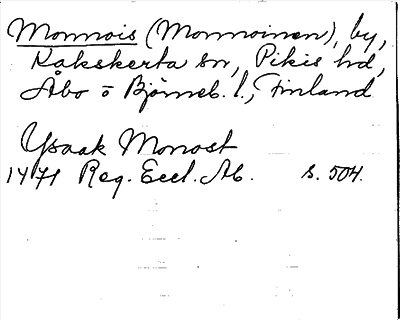 Monnois (Monnoinen), by,
Kakskerta sn, Pikis hd,
Åbo o Björneb. l., Finland
Ysaak Monost
1471 Reg. Eccl. Ab. s. 504.